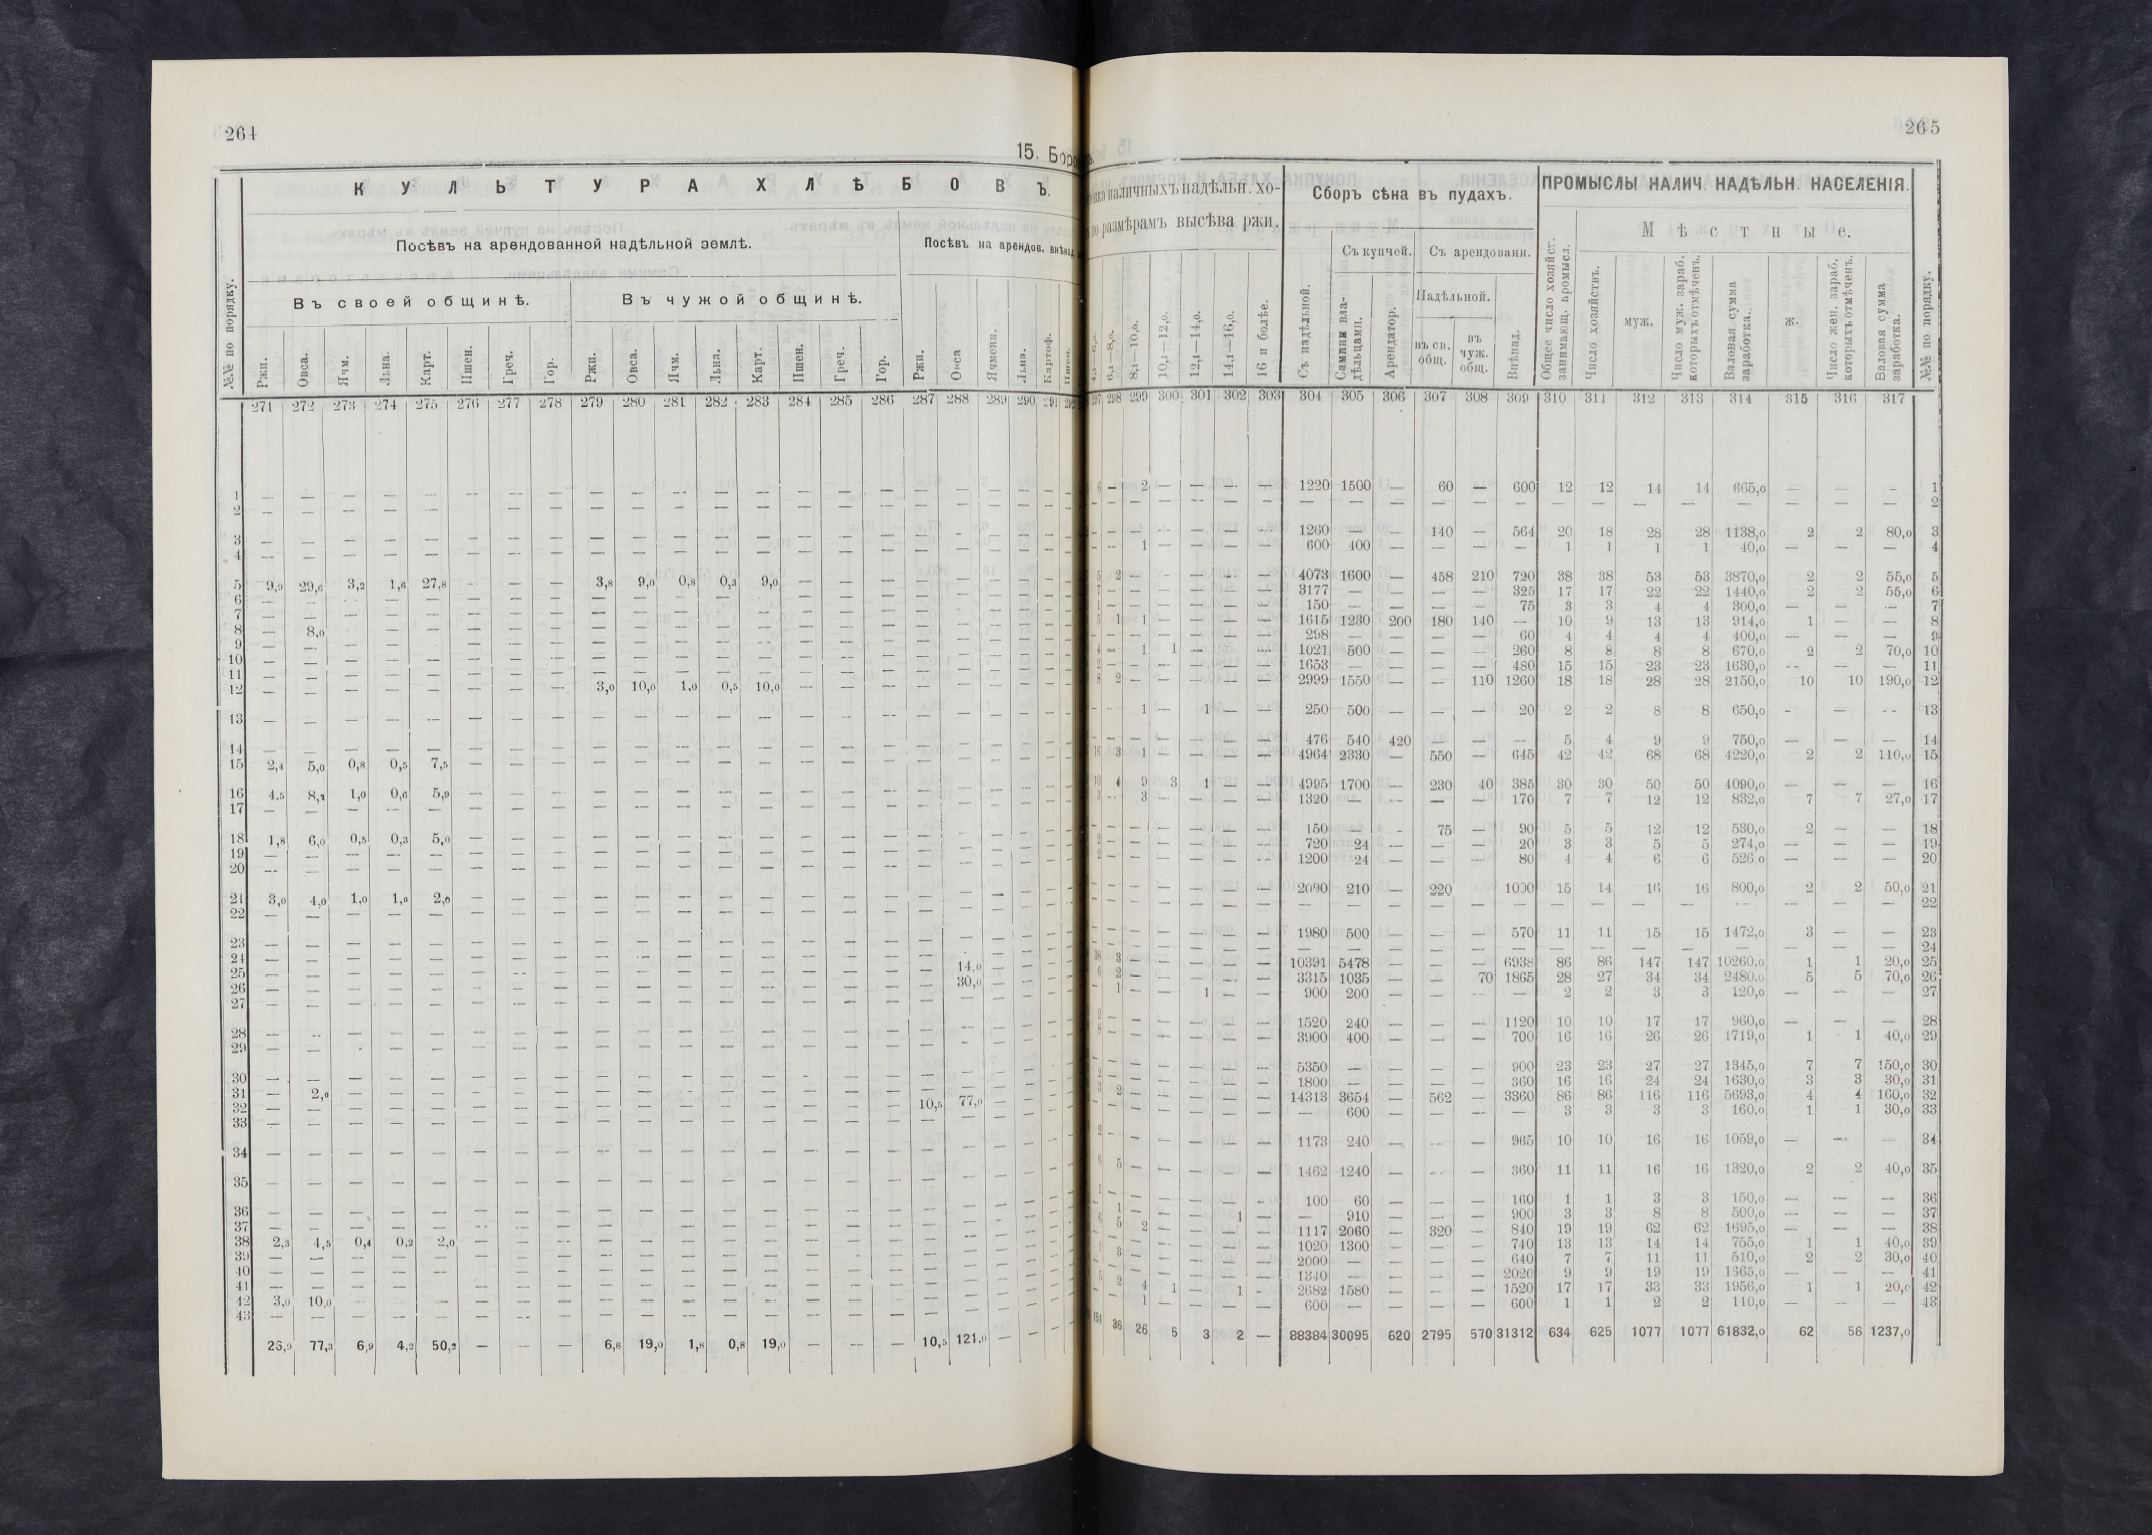 264
15. Боро
К У Л Ь Т У Р А Х Л Ѣ Б О В Ъ.
Посѣвъ на арендованной надѣльной землѣ. Посѣвъ на арендов.
Въ своей общинѣ. Въ чужой общинѣ.
№№ по порядку. Ржи. Овса. Ячм. Льна. Карт. Пшен. Греч. Гор. Ржи. Овса. Ячм. Льна. Карт. Пшен. Греч. Гор. Ржи. Овса Ячменя. Льна. Картоф.
271 272 273 274 275 276 277 278 279 280 281 282 283 284 285 286 287 288 289 290
1 — — — — — — — — — — — — — — — — — — — —
2 — — — — — — — — — — — — — — — — — — — —
3 — — — — — — — — — — — — — — — — — — — —
4 — — — — — — — — — — — — — — — — — — — —
5 9,0 29,6 3,2 1,6 27,8 — — — 3,8 9,0 0,8 0,3 9,0 — — — — — — —
6 — — — — — — — — — — — — — — — — — — — —
7 — — — — — — — — — — — — — — — — — — — —
8 — 8,0 — — — — — — — — — — — — — — — — — —
9 — — — — — — — — — — — — — — — — — — — —
10 — — — — — — — — — — — — — — — — — — — —
11 — — — — — — — — — — — — — — — — — — — —
12 — — — — — — — — 3,0 10,0 1,0 0,5 10,0 — — — — — — —
13 — — — — — — — — — — — — — — — — — — — —
14 — — — — — — — — — — — — — — — — — — — —
15 2,4 5,0 0,8 0,5 7,5 — — — — — — — — — — — — — — —
16 4,5 8,2 1,0 0,6 5,9 — — — — — — — — — — — — — — —
17 — — — — — — — — — — — — — — — — — — — —
18 1,8 6,0 0,5 0,3 5,0 — — — — — — — — — — — — — — —
19 — — — — — — — — — — — — — — — — — — — —
20 — — — — — — — — — — — — — — — — — — — —
21 3,0 4,0 1,0 1,0 2,0 — — — — — — — — — — — — — — —
22 — — — — — — — — — — — — — — — — — — — —
23 — — — — — — — — — — — — — — — — — — — —
24 — — — — — — — — — — — — — — — — — — — —
25 — — — — — — — — — — — — — — — — — 14,0 — —
26 — — — — — — — — — — — — — — — — — 30,0 — —
27 — — — — — — — — — — — — — — — — — — — —
28 — — — — — — — — — — — — — — — — — — — —
29 — — — — — — — — — — — — — — — — — — — —
30 — — — — — — — — — — — — — — — — — — — —
31 — 2,0 — — — — — — — — — — — — — — — — — —
32 — — — — — — — — — — — — — — — — 10,5 77,0 — —
33 — — — — — — — — — — — — — — — — — — — —
34 — — — — — — — — — — — — — — — — — — — —
35 — — — — — — — — — — — — — — — — — — — —
36 — — — — — — — — — — — — — — — — — — — —
37 — — — — — — — — — — — — — — — — — — — —
38 2,3 4,5 0,4 0,2 2,0 — — — — — — — — — — — — — — —
39 — — — — — — — — — — — — — — — — — — — —
40 — — — — — — — — — — — — — — — — — — — —
41 — — — — — — — — — — — — — — — — — — — —
42 3,0 10,0 — — — — — — — — — — — — — — — — — —
43 — — — — — — — — — — — — — — — — — — — —
26,0 77,3 6,9 4,2 50,2 — — — 6,8 19,0 1,8 0,8 19,0 — — — 10,5 121,0 — —
265
наличныхъ надѣльн. хо-
по размѣрамъ высѣва ржи.
Сборъ сѣна въ пудахъ.
ПРОМЫСЛЫ НАЛИЧ. НАДѢЛЬН. НАСЕЛЕНІЯ.
Мѣстные.
Съ купчей. Съ арендованн.
Надѣльной.
6,1—8,0. 8,1—10,0. 10,1—12,0. 12,1—14,0. 14,1—16,0. 16 и болѣе. Съ надѣльной. Самими вла-дѣльцами. Арендатор. въ св. общ. въ чуж. общ. Внѣнад. Общее число хозяйст. занимающ. промысл. Число хозяйствъ. муж. Число муж. зараб. которыхъ отмѣченъ. Валовая сумма заработка. ж. Число жен. зараб. которыхъ отмѣченъ. Валовая сумма заработка. №№ по порядку.
297 298 299 300 301 302 303 304 305 306 307 308 309 310 311 312 313 314 315 316 317
6 — 2 — — — — 1220 1500 — 60 — 600 12 12 14 14 665,0 — — — 1
— — — — — — — — — — — — — — — — — — — — 2
— — — — — — 1260 — — 140 — 564 20 18 28 28 1138,0 2 2 80,0 3
— 1 — — — — 600 400 — — — — 1 1 1 1 40,0 — — — 4
5 2 — — — — — 4073 1600 — 458 210 720 38 38 53 53 3870,0 2 2 55,0 5
— — — — — — 3177 — — — — 325 17 17 22 22 1440,0 2 2 55,0 6
— — — — — — 150 — — — — 75 3 3 4 4 300,0 — — — 7
5 1 1 — — — — 1615 1230 200 180 140 — 10 9 13 13 914,0 1 — — 8
— — — — — — 298 — — — — 60 4 4 4 4 400,0 — — — 9
4 — 1 1 — — — 1021 500 — — — 260 8 8 8 8 670,0 2 2 70,0 10
— — — — — — 1653 — — — — 480 15 15 23 23 1630,0 — — — 11
8 2 — — — — — 2999 1550 — — 110 1260 18 18 28 28 2150,0 10 10 190,0 12
— 1 — 1 — — 250 500 — — — 20 2 2 8 8 650,0 — — — 13
— — — — — — 476 540 420 — — — 5 4 9 9 750,0 — — — 14
16 3 1 — — — — 4964 2330 — 550 — 645 42 42 68 68 4220,0 2 2 110,0 15
10 4 9 3 1 — — 4995 1700 — 230 40 385 30 30 50 50 4090,0 — — — 16
3 — 3 — — — — 1320 — — — — 170 7 7 12 12 832,0 7 7 27,0 17
— — — — — — 150 — — 75 — 90 5 5 12 12 530,0 2 — — 18
— — — — — — 720 24 — — — 20 3 3 5 5 274,0 — — — 19
— — — — — — 1200 24 — — — 80 4 4 6 6 526,0 — — — 20
— — — — — — 2090 210 — 220 1000 15 14 16 16 800,0 2 2 50,0 21
— — — — — — — — — — — — — — — — — — — — 22
— — — — — — 1980 500 — — — 570 11 11 15 15 1472,0 3 — — 23
— — — — — — — — — — — — — — — — — — — — 24
3 — — — — — 10391 5478 — — — 6938 86 86 147 147 10260,0 1 1 20,0 25
6 2 — — — — — 3315 1035 — — 70 1865 28 27 34 34 2480,0 5 5 70,0 26
1 — — 1 — — 900 200 — — — — 2 2 3 3 120,0 — — — 27
— — — — — — 1520 240 — — — 1120 10 10 17 17 960,0 — — — 28
— — — — — — 3900 400 — — — 700 16 16 26 26 1719,0 1 1 40,0 29
— — — — — — 5350 — — — — 900 23 23 27 27 1345,0 7 7 150,0 30
— — — — — — 1800 — — — — 360 16 16 24 24 1630,0 3 3 30,0 31
2 — — — — — 14313 3654 — 562 — 3360 86 86 116 116 5693,0 4 4 160,0 32
— — — — — — — 600 — — — — 3 3 3 3 160,0 1 1 30,0 33
— — — — — — 1173 240 — — — 965 10 10 16 16 1059,0 — — — 34
5 — — — — — 1462 1240 — — — 360 11 11 16 16 1320,0 2 2 40,0 35
— — — — — — 100 60 — — — 160 1 1 3 3 150,0 — — — 36
1 — — — 1 — — 910 — — — 900 3 3 8 8 500,0 — — — 37
5 2 — — — — 1117 2060 — 320 — 840 19 19 62 62 1695,0 — — — 38
— — — — — — 1020 1300 — — — 740 13 13 14 14 755,0 1 1 40,0 39
3 — — — — — 2000 — — — — 640 7 7 11 11 510,0 2 2 30,0 40
— — — — — — 1340 — — — — 2020 9 9 19 19 1365,0 — — — 41
2 4 1 — 1 — 2682 1580 — — — 1520 17 17 33 33 1956,0 1 1 20,0 42
— 1 — — — — 600 — — — — 600 1 1 2 2 110,0 — — — 43
151 36 26 5 3 2 — 88384 30095 620 2795 570 31312 634 625 1077 1077 61832,0 62 56 1237,0